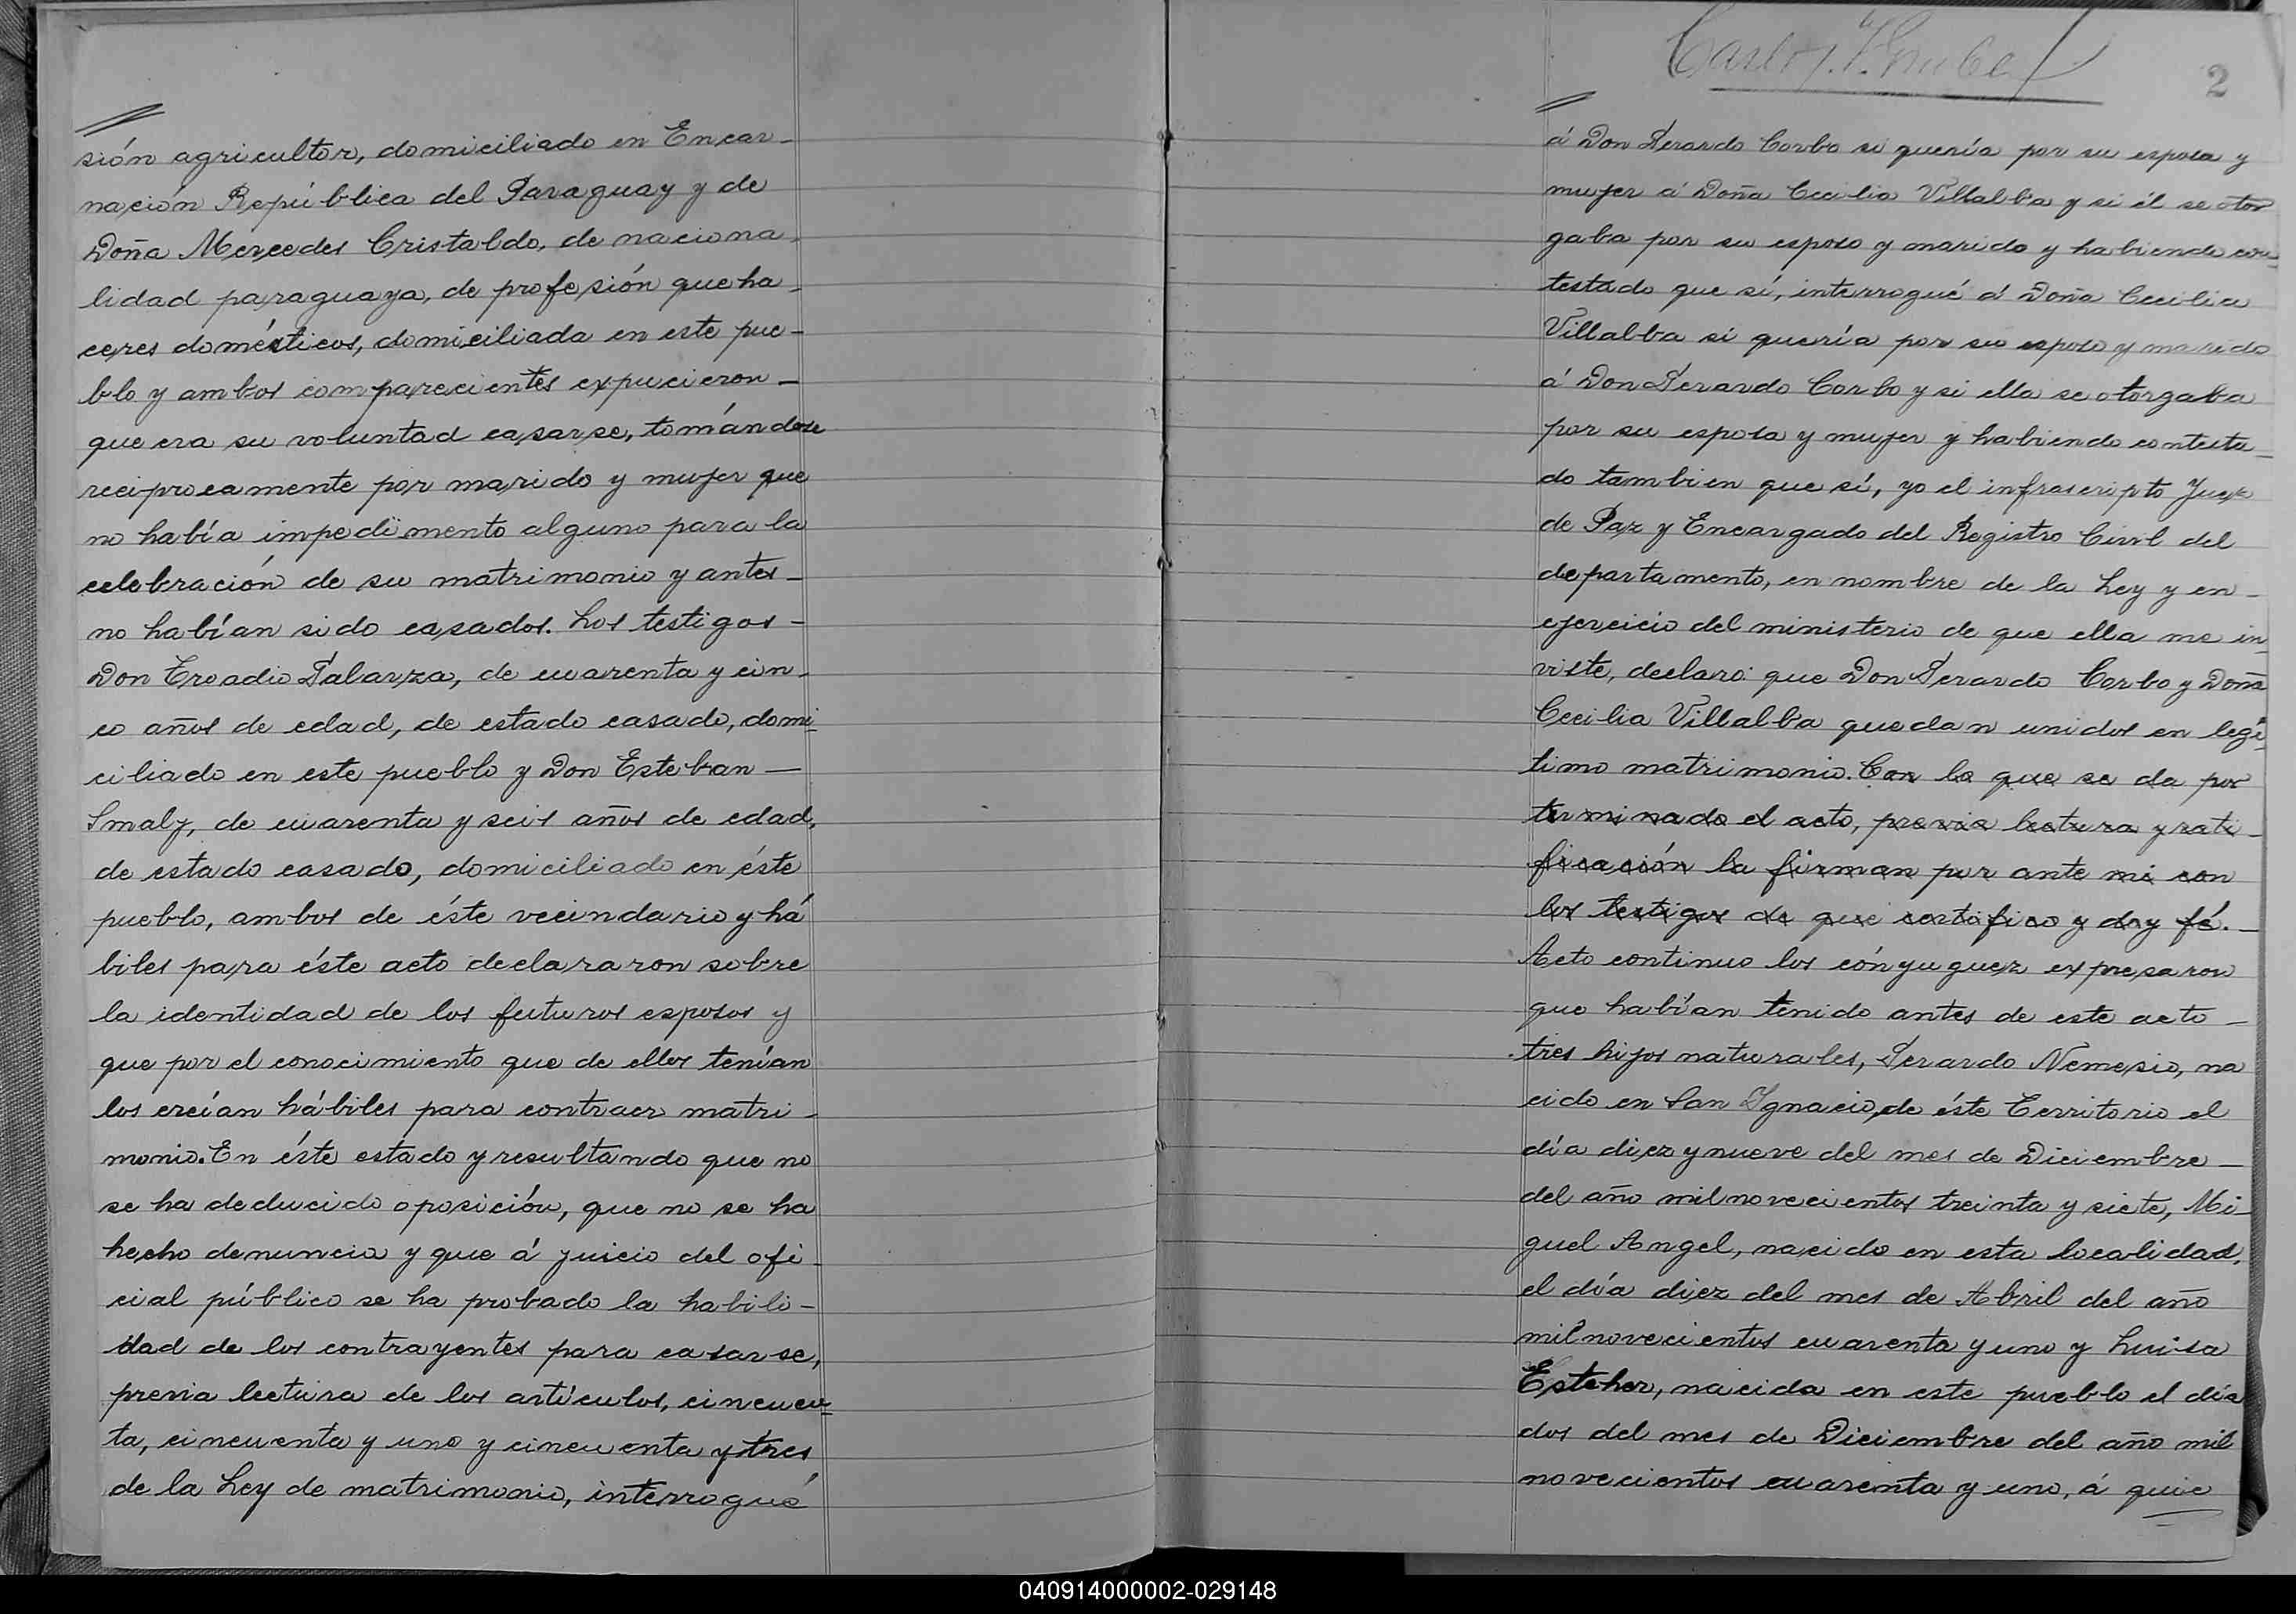 sión agricultor, domiciliado en Encar-
nación República del Paraguay y de
Doña Mercedes Cristaldo, de naciona-
lidad paraguaya, de profesión queha-
ceres domésticos, domiciliada en este pue-
blo y ambos comparecientes expucieron-
que era su voluntad casarse, tomándose
reciprocamente por marido y mujer que
no había impedimento alguno para la
celebración de su matrimonio y antes-
no habían sido casados. Los testigos-
Don Eroadio Galarza, de cuarenta y cin-
co años de edad, de estado casado, domi-
ciliado en este pueblo y Don Esteban-
Smalz, de cuarenta y seis años de edad,
de estado casado, domiciliado en éste
pueblo, ambos de éste vecindario y há
biles para éste acto declararon sobre
la identidad de los futuros esposos y
que por el conocimiento que de ellos tenían
los creían hábiles para contraer matri-
monio. En éste estado y resultando que no
se ha deducido oposición, que no se ha
hecho denuncia y que á juicio del ofi-
cial público se ha probado la habili-
dad de los contrayentes para casarse,
previa lectura de los artículos, cincuen-
ta, cincuenta y uno y cincuenta y tres
de la Ley de matrimonio, interrogué
2
á Don Gerardo Corbo si quería por su esposa y
mujer á Doña Cecilia Villalba y si él se otor
gaba por su esposo y marido y habiendo con-
testado que sí, interrogué á Doña Cecilia
Villalba si quería por su esposo y marido
á Don Gerardo Corbo y si ella se otorgaba
por su esposa y mujer y habiendo contesta-
do tambien que sí, yo el infrascripto Juez
de Paz y Encargado del Registro Civil del
departamento, en nombre de la Ley y en-
ejercicio del ministerio de que ella me in
viste, declaro: que Don Gerardo Corbo y Doña
Cecilia Villalba quedan unidos en legí
timo matrimonio. Con lo que se da por
terminado el acto, previa lectura y rati-
ficación la firman por ante mi con
los testigos de que certifico y doy fé.-
Acto continuo los cónyuguez expresaron
que habían tenido antes de este acto-
tres hijos naturales, Gerardo Nemesio, na
cido en San Ignacio, de éste Territorio el
día diez y nueve del mes de Diciembre-
del año mil novecientos treinta y siete, Mi-
guel Angel, nacido en esta localidad,
el día diez del mes de Abril del año
mil novecientos cuarenta y uno y Luisa
Estéher, nacida en este pueblo el día
dos del mes de Diciembre del año mil
novecientos cuarenta y uno, á quie
040914000002-029148